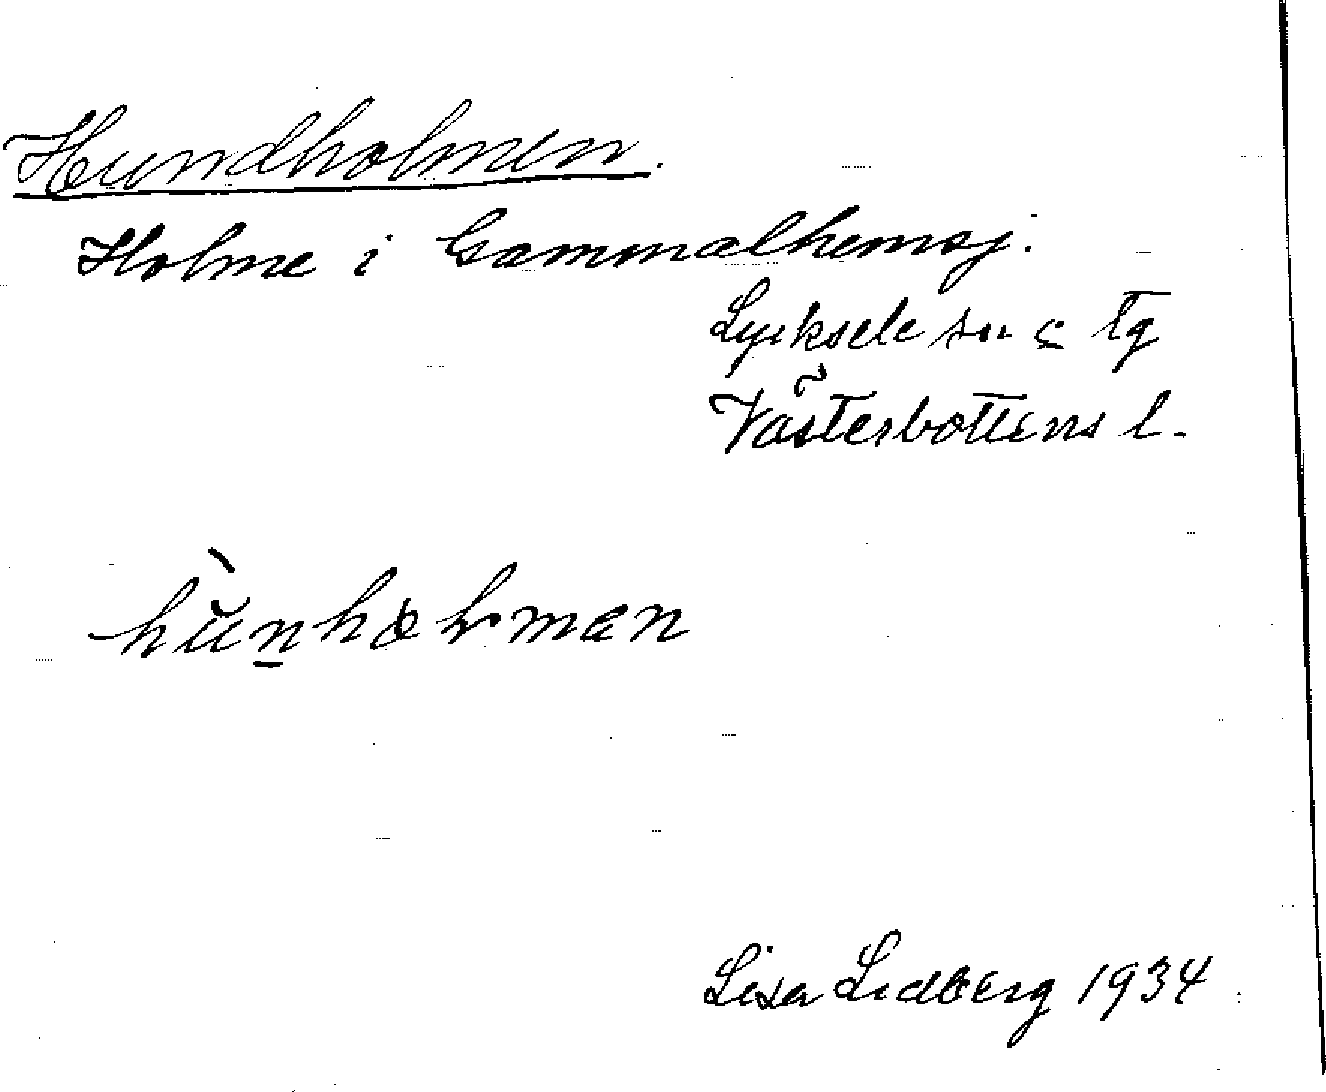 Hundholmen.
Holme i Gammalhemsj.
Lycksele sn & Tg
Västerbottens l.
Lisa Lidberg 1934